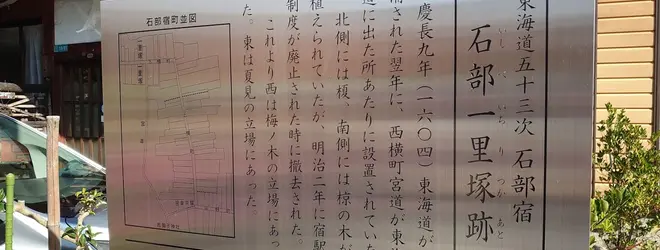 東海道五十三次 石部宿
石部一里塚跡
いし べ いち り つか あと
慶長九年（一六〇四）東海道が
された翌年に、西横町宮道が東海
道に出た所あたりに設置されていた
北側には榎、南側には椋の木が
植えられていたが、明治二年に宿駅
制度が廃止された時に撤去された。
これより西は梅ノ木の立場にあっ
た。東は夏見の立場にあった。
石部宿町並図